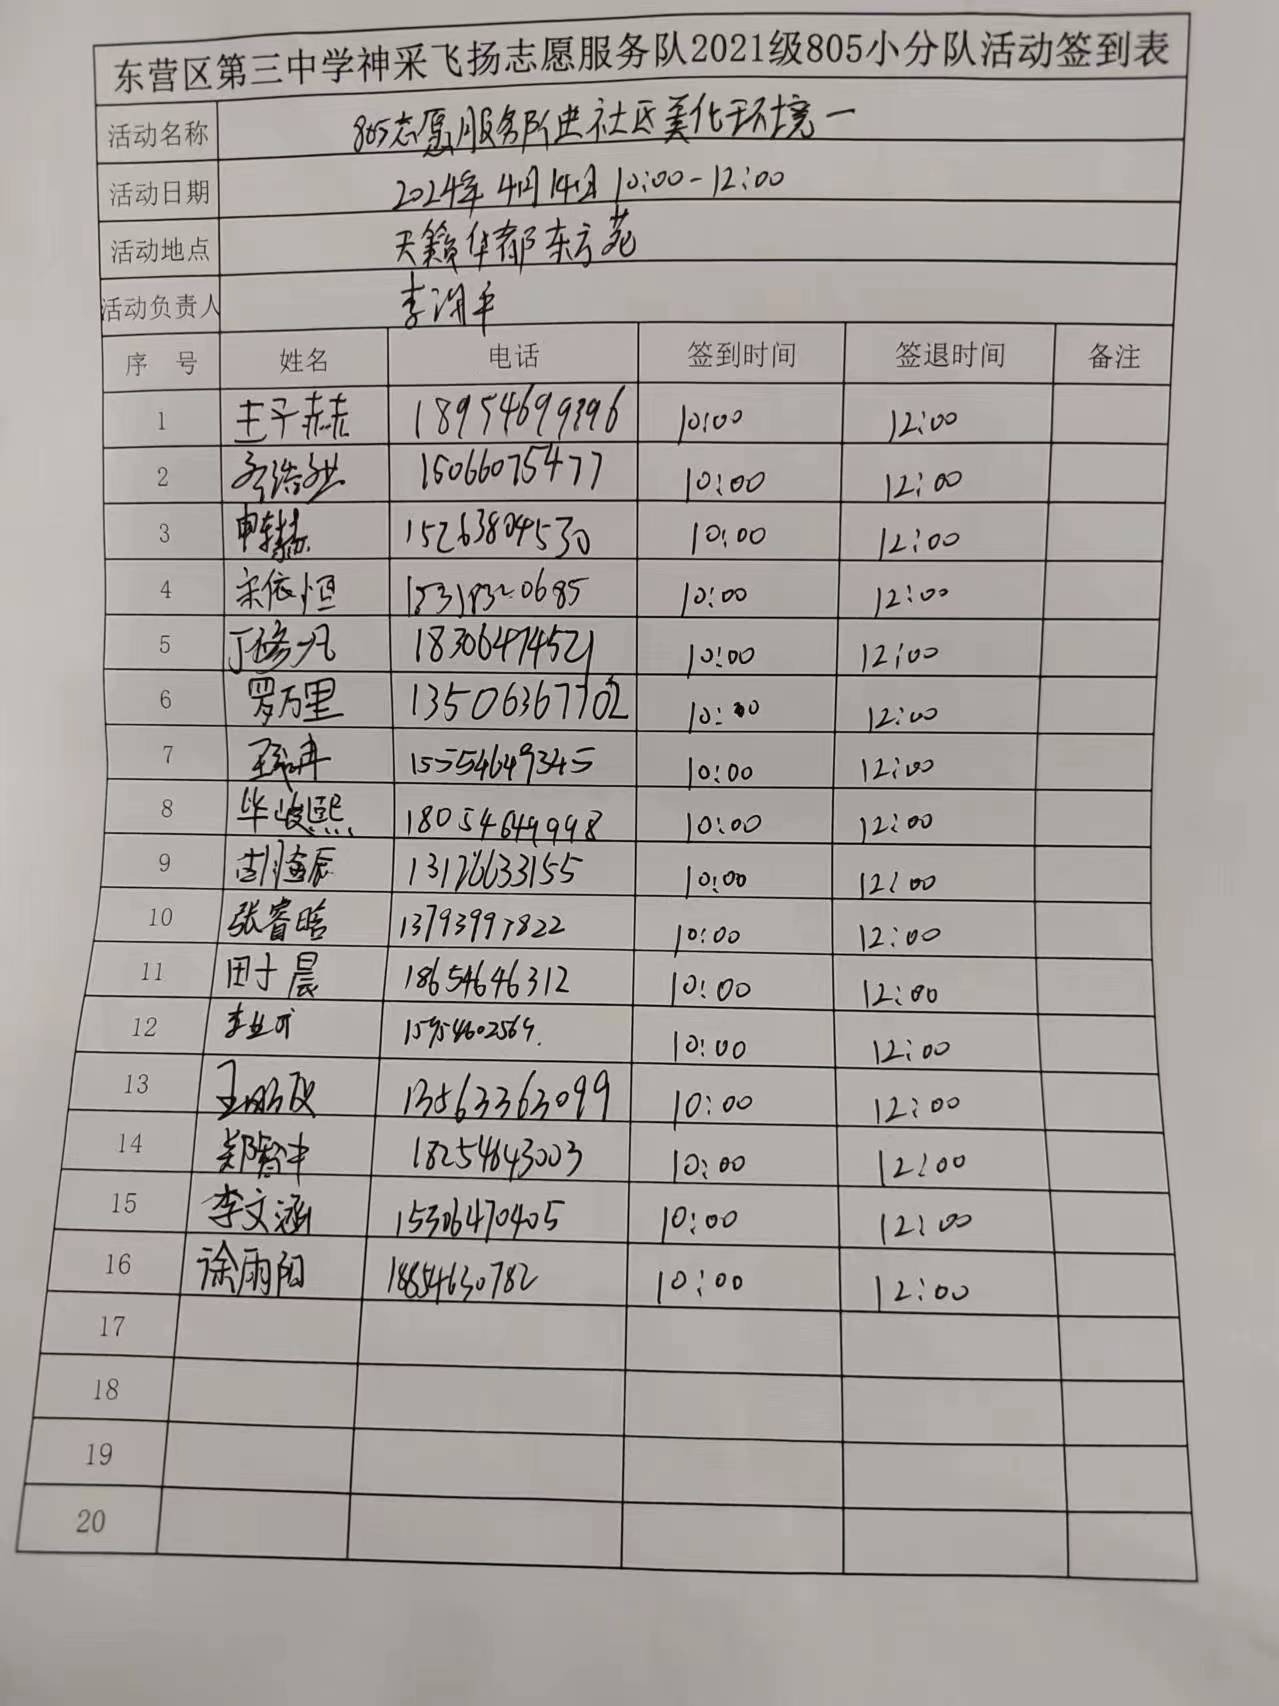 东营区第三中学神采飞扬志愿服务队2021级805小分队活动签到表
活动名称 805志愿服务队进社区美化环境一
活动日期 2024年4月14日 10:00-12:00
活动地点 天籁华都东方苑
活动负责人 李
序 号 姓名 电话 签到时间 签退时间 备注
1 王子赫 18954699396 10:00 12:00
2 15066075477 10:00 12:00
3 15263804530 10:00 12:00
4 宋依恒 15318320685 10:00 12:00
5 丁修凡 18306474521 10:00 12:00
6 罗万里 13506367702 10:00 12:00
7 15554649345 10:00 12:00
8 毕峻熙 18054649998 10:00 12:00
9 13126633155 10:00 12:00
10 张睿晗 13793997822 10:00 12:00
11 田于晨 18654646312 10:00 12:00
12 15954602569 10:00 12:00
13 13563363099 10:00 12:00
14 郑智中 18254643003 10:00 12:00
15 李文涵 15306470405 10:00 12:00
16 徐雨阳 18654630782 10:00 12:00
17
18
19
20